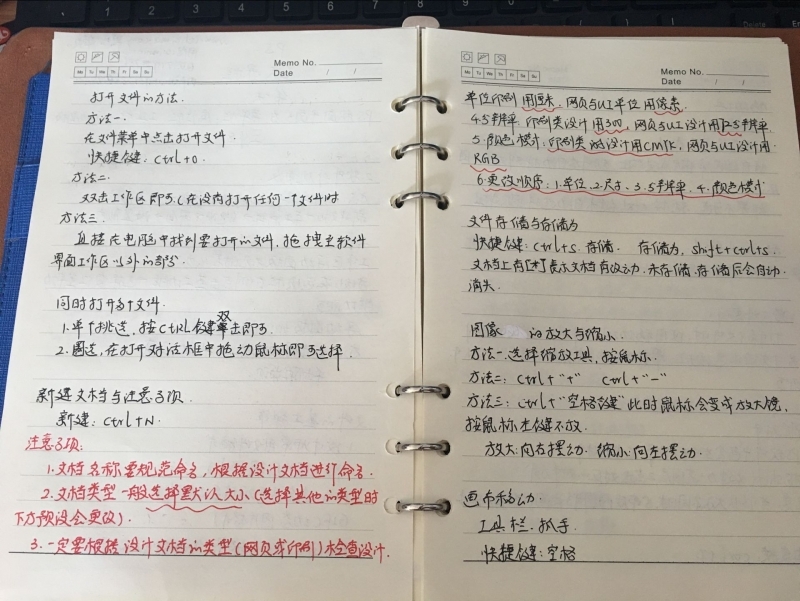 Memo No.
Mo Tu We Th Fr Sa Su
Date / /
打开文件的方法.
方法一.
在文件菜单中点击打开文件.
快捷键: ctrl+o.
方法二.
双击工作区即可(在没有打开任何一个文件时
方法三.
直接在电脑中找到要打开的文件,拖拽至软件
界面工作区以外的部分.
同时打开多个文件.
双
1.单个挑选,按CTRL键单击即可
2.圈选,在打开对话框中拖动鼠标即可选择.
新建文档与注意事项.
新建: ctrl+N.
注意事项:
1.文档名称要规范命名,根据设计文档进行命名.
2.文档类型一般选择默认大小(选择其他的类型时
下方预设会更改).
3.一定要根据设计文档的类型(网页或印刷)检查设计.
Memo No.
Mo Tu We Th Fr Sa Su
Date / /
单位印刷用厘米,网页与UI单位用像素.
4.分辨率:印刷类设计用300,网页与UI设计用72分辨率.
5.颜色模式:印刷类的设计用CMYK,网页与UI设计用
RGB
6.更改顺序:1.单位、2.尺寸、3.分辨率、4.颜色模式
文件存储与存储为
快捷键: ctrl+s.存储. 存储为, shift+ctrl+s.
文档上有[*]表示文档有改动.未存储.存储后会自动.
消失.
图像 的放大与缩小.
方法一.选择缩放工具,按鼠标.
方法二: ctrl+"+" ctrl+"-"
方法三: ctrl+"空格键"此时鼠标会变成放大镜,
按鼠标左键不放.
放大:向右摆动. 缩小:向左摆动.
画布移动.
工具栏.抓手.
快捷键:空格